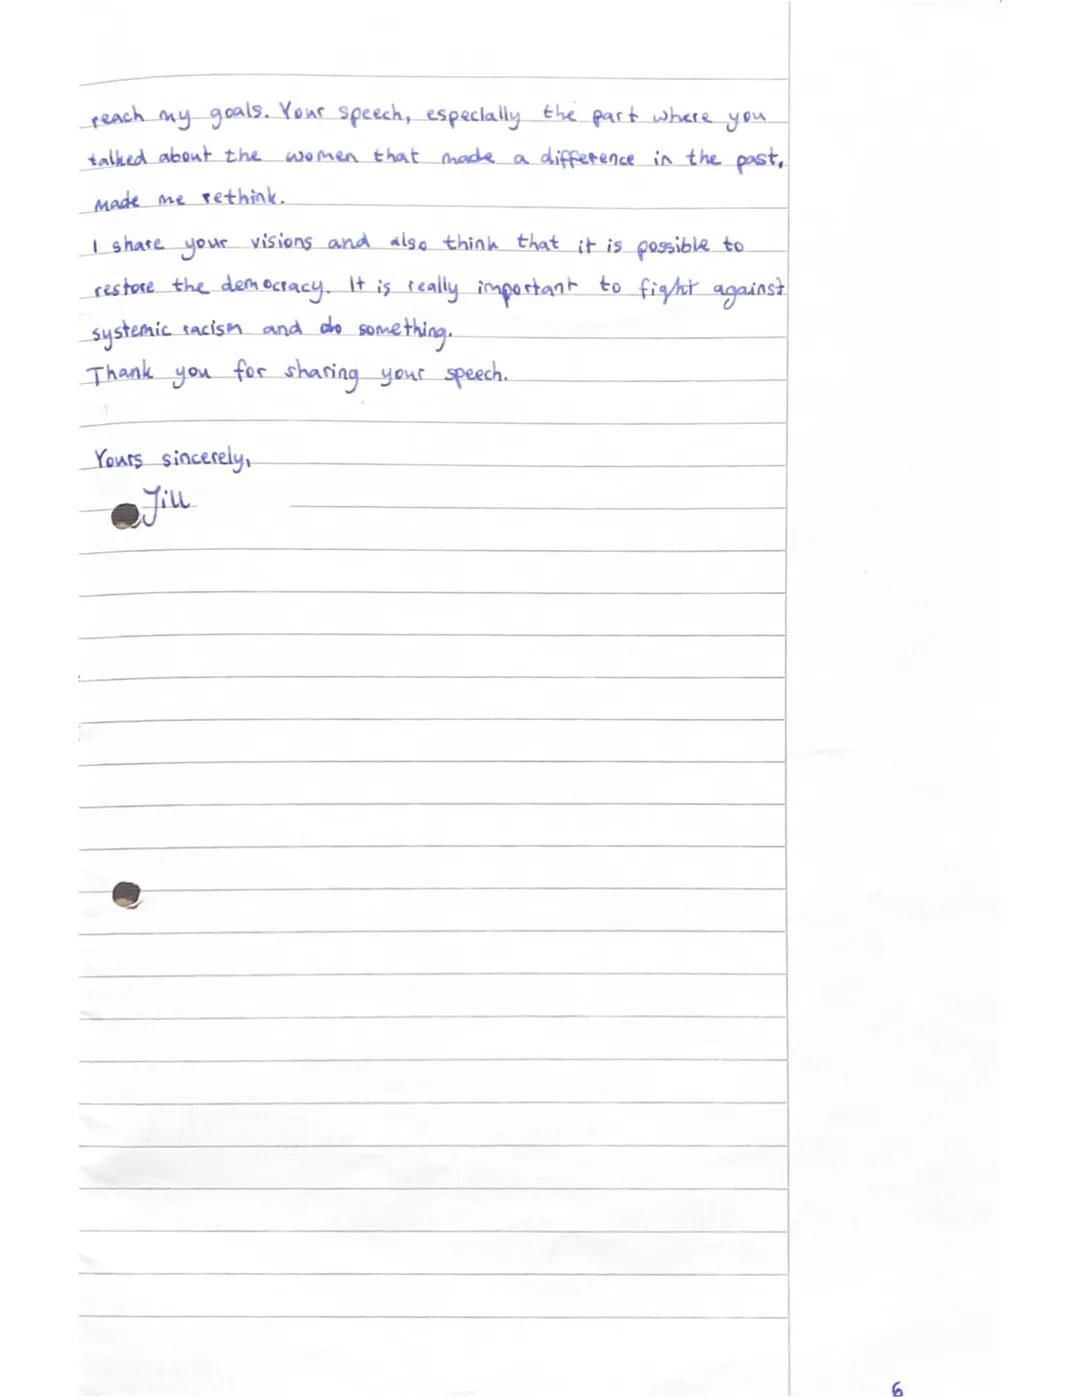 reach my goals. Your speech, especially the part where you
talked about the women that made a difference in the past,
made me rethink.
I share your visions and also think that it is possible to
restore the democracy. It is really important to fight against
systemic racism and do something.
Thank you for sharing your speech.
Yours sincerely,
Jill
6